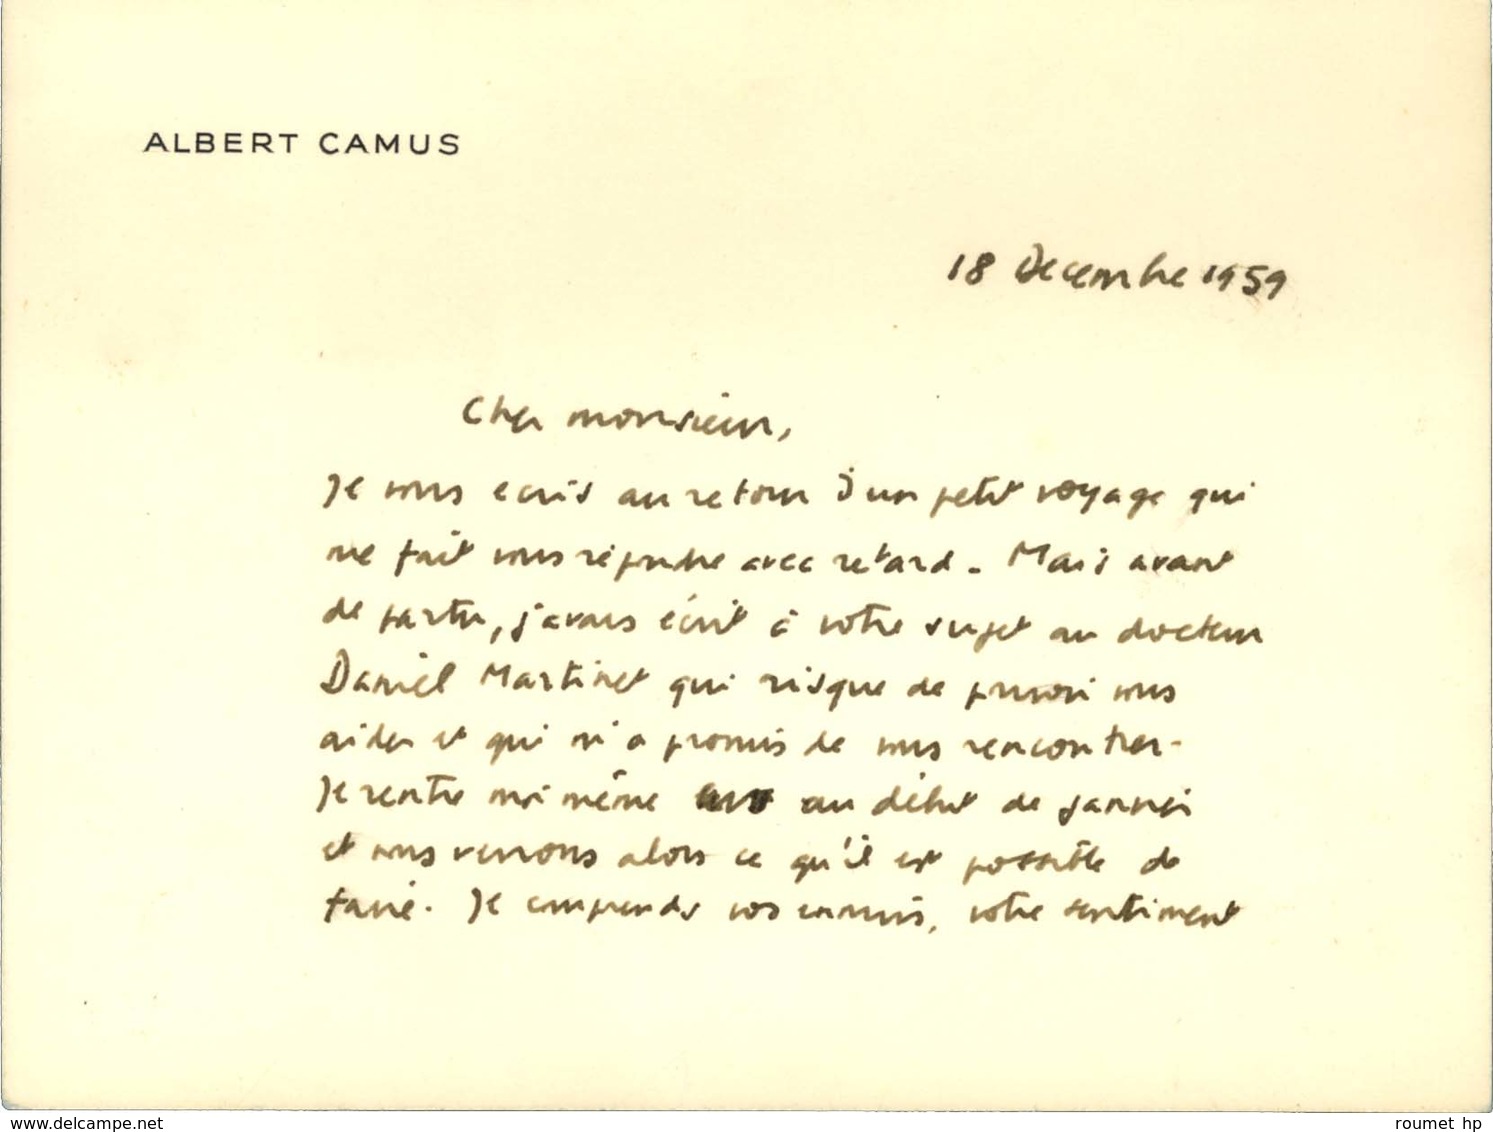 ALBERT CAMUS
18 Decembre 1959
Cher monsieur,
Je vous ecris au retour d'un petit voyage qui
me fait vous répondre avec retard. Mais avant
de partir, j'avais écrit à votre sujet au docteur
Daniel Martinet qui risque de pouvoir vous
aider et qui m'a promis de vous rencontrer.
Je rentre moi même au début de janvier
et nous verrons alors ce qu'il est possible de
faire. Je comprends vos ennuis, votre sentiment
www.delcampe.net
roumet hp